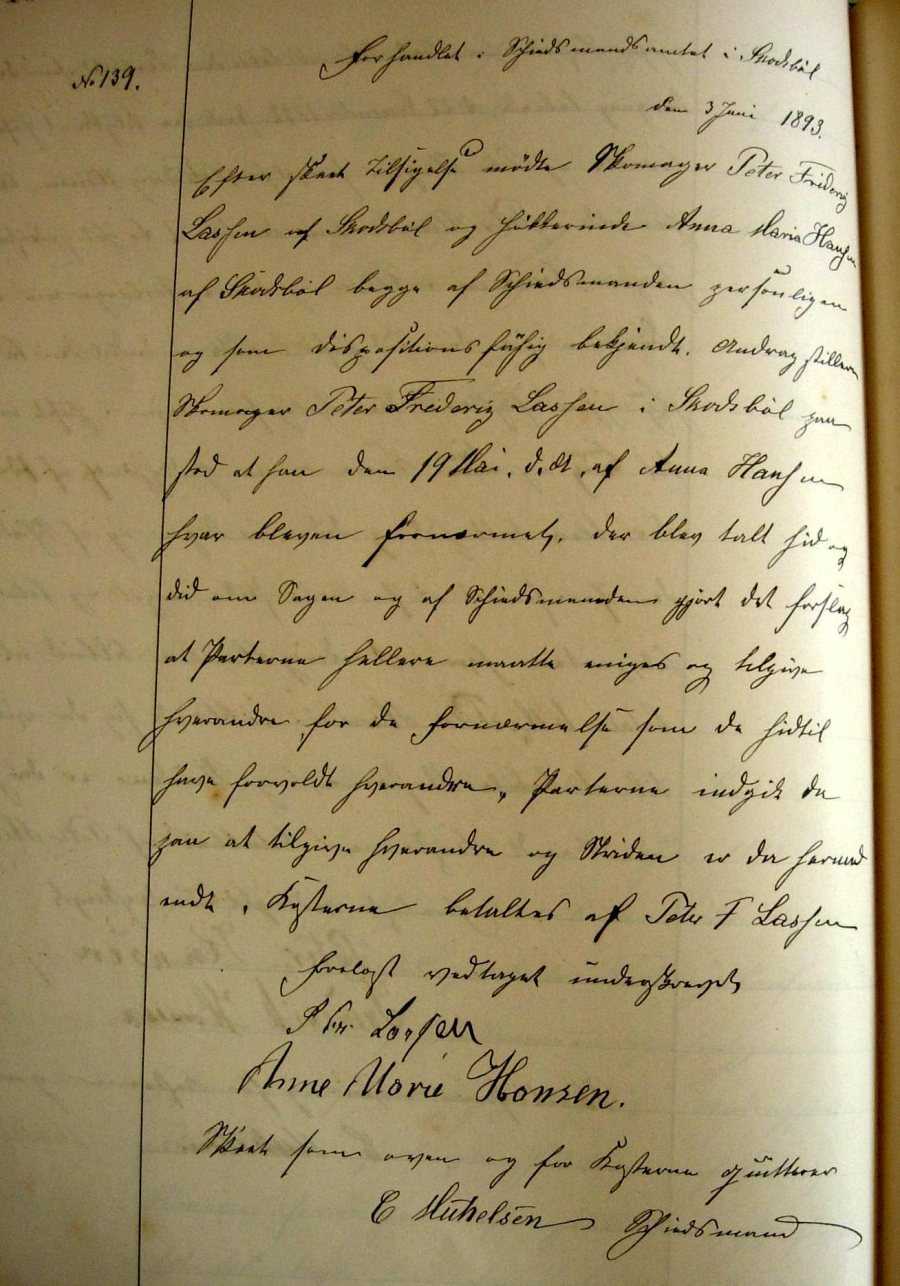 No 139.
Forhandlet i Schiedsmandsamtet i Skodsböl
den 3 Juni 1893.
Efter skeet Tilsigelse mödte Skomager Peter Friderig
Lassen af Skodsböl og Hökkerinde Anna Maria Hansen
af Skodsböl begge af Schiedsmanden personligen
og som dispositionsfähig bekjendt. Andragstilleren
Skomager Peter Frederig Lassen i Skodsböl paa
stod at han den 19 Mai. d. At. af Anna Hansen
hvar bleven fornærmet. der blev talt hid og
did om Sagen og af Schiedsmanden gjort det forslag
at Parterne hellere maatte eniges og tilgive
hverandre for de fornærmelse som de hidtil
have forvoldt hverandre, Parterne indgik da
paa at tilgive hverandre og Striden er da hermed
endt. Kosterne betaltes af Peter F Lassen
Forelæst vedtaget underskrevet
Peter Lassen
Anne Marie Hansen.
Skeet som oven og for Kosterne quitterer
C Michelsen Schiedsmand